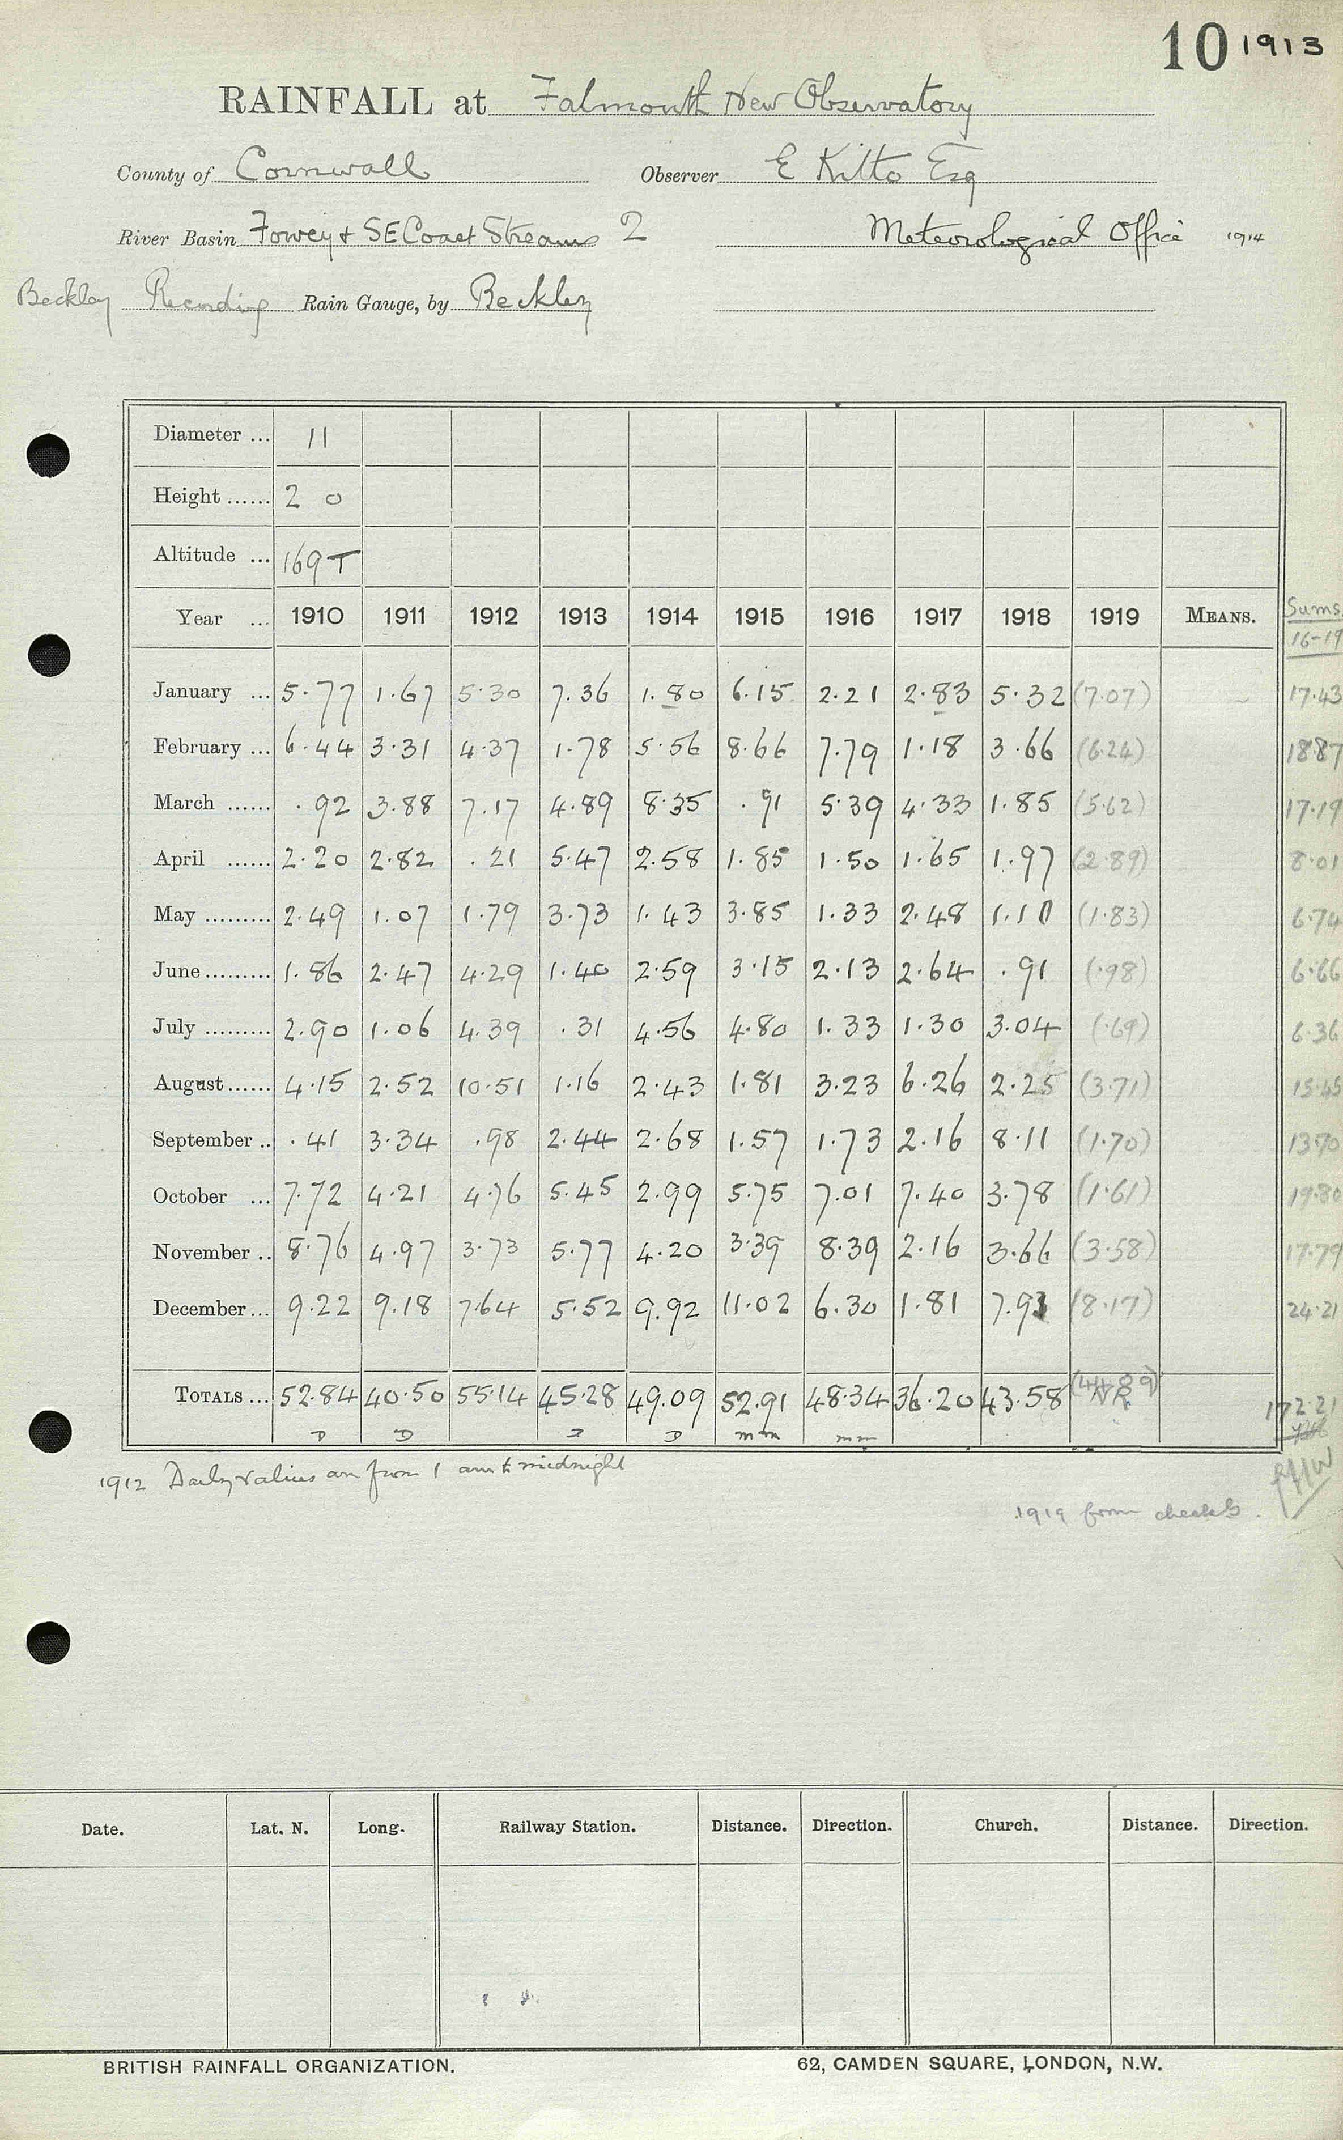 10 1913
RAINFALL at Falmouth New Observatory
County of Cornwall Observer E Kitto Esq
River Basin Fowey & SE Coast Streams 2 Meteorological Office 1914
Beckley Recording Rain Gauge, by Beckley
Diameter ... 11
Height ...... 2 0
Altitude ... 169 T
Year ... 1910 1911 1912 1913 1914 1915 1916 1917 1918 1919 MEANS. Sums 16-19
January ... 5.77 1.67 5.30 7.36 1.80 6.15 2.21 2.83 5.32 (7.07) 17.43
February ... 6.44 3.31 4.37 1.78 5.56 8.66 7.79 1.18 3.66 (6.24) 18.87
March ...... .92 3.88 7.17 4.89 8.35 .91 5.39 4.33 1.85 (5.62) 17.19
April ...... 2.20 2.82 .21 5.47 2.58 1.85 1.50 1.65 1.97 (2.89) 8.01
May ......... 2.49 1.07 1.79 3.73 1.43 3.85 1.33 2.48 1.10 (1.83) 6.74
June ......... 1.86 2.47 4.29 1.40 2.59 3.15 2.13 2.64 .91 (.98) 6.66
July ......... 2.90 1.06 4.39 .31 4.56 4.80 1.33 1.30 3.04 (.69) 6.36
August ...... 4.15 2.52 10.51 1.16 2.43 1.81 3.23 6.26 2.25 (3.71) 15.45
September .. .41 3.34 .98 2.44 2.68 1.57 1.73 2.16 8.11 (1.70) 13.70
October ... 7.72 4.21 4.76 5.45 2.99 5.75 7.01 7.40 3.78 (1.61) 19.80
November .. 8.76 4.97 3.73 5.77 4.20 3.39 8.39 2.16 3.66 (3.58) 17.79
December ... 9.22 9.18 7.64 5.52 9.92 11.02 6.30 1.81 7.93 (8.17) 24.21
TOTALS ... 52.84 40.50 55.14 45.28 49.09 52.91 48.34 36.20 43.58 172.21
D D D D mm mm
1912 Daily values are from 1 am to midnight
1919 from checks.
Date. Lat. N. Long. Railway Station. Distance. Direction. Church. Distance. Direction.
BRITISH RAINFALL ORGANIZATION. 62, CAMDEN SQUARE, LONDON, N.W.